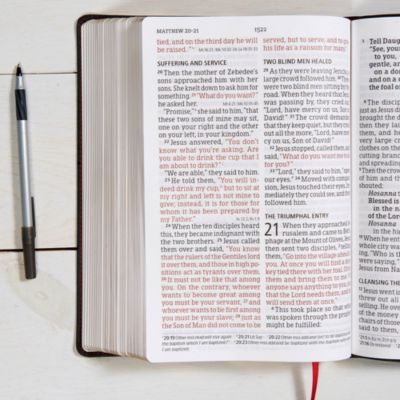 MATTHEW 20-21
1522
fied, and on the third day he
will be raised."
SUFFERING AND SERVICE
20 Then the mother of Zebedee's
sons approached him with her
sons. She knelt down to ask him for
something. 21 "What do you want?"
he asked her.
"Promise," she said to him, "that
these two sons of mine may sit,
one on your right and the other
on your left, in your kingdom."
22 Jesus answered, "You don't
know what you're asking. Are
you able to drink the cup that I
am about to drink?"
"We are able," they said to him.
23 He told them, "You will in-
deed drink my cup, but to sit at
my right and left is not mine to
give; instead, it is for those for
whom it has been prepared by
my Father."
24 When the ten disciples heard
this, they became indignant with
the two brothers. 25 Jesus called
them over and said, "You know
that the rulers of the Gentiles lord
it over them, and those in high po-
sitions act as tyrants over them.
26 It must not be like that among
you. On the contrary, whoever
wants to become great among
you must be your servant, 27 and
whoever wants to be first among
you must be your slave; 28 just as
the Son of Man did not come to be
served, but to serve, and to give
his life as a ransom for many."
TWO BLIND MEN HEALED
29 As they were leaving Jericho, a
large crowd followed him. 30 There
were two blind men sitting by the
road. When they heard that Jesus
was passing by, they cried out,
"Lord, have mercy on us, Son of
David!" 31 The crowd demanded
that they keep quiet, but they cried
out all the more, "Lord, have mer-
cy on us, Son of David!"
32 Jesus stopped, called them, and
said, "What do you want me to do
for you?"
33 "Lord," they said to him, "open
our eyes." 34 Moved with compas-
sion, Jesus touched their eyes. Im-
mediately they could see, and they
followed him.
THE TRIUMPHAL ENTRY
21 When they approached Je-
rusalem and came to Beth-
phage at the Mount of Olives, Jesus
then sent two disciples, 2 telling
them, "Go into the village ahead of
you. At once you will find a don-
key tied there with her foal. Untie
them and bring them to me. 3 If
anyone says anything to you, say
that the Lord needs them, and he
will send them at once."
4 This took place so that what
was spoken through the prophet
might be fulfilled:
5 Tell Daug
"See, your
to you,
gentle, an
on a don
and on a
the foal o
6 The discip
just as Jesus
brought the d
then they lai
them, and he
very large c
clothes on th
cutting bran
and spreadin
9 Then the crow
of him and th
shouted:
Hosanna
Blessed is
in the na
of the Lor
Hosanna
10 When he en
whole city wa
ing, "Who is
were saying, "
Jesus from Na
CLEANSING THE
12 Jesus went i
threw out all